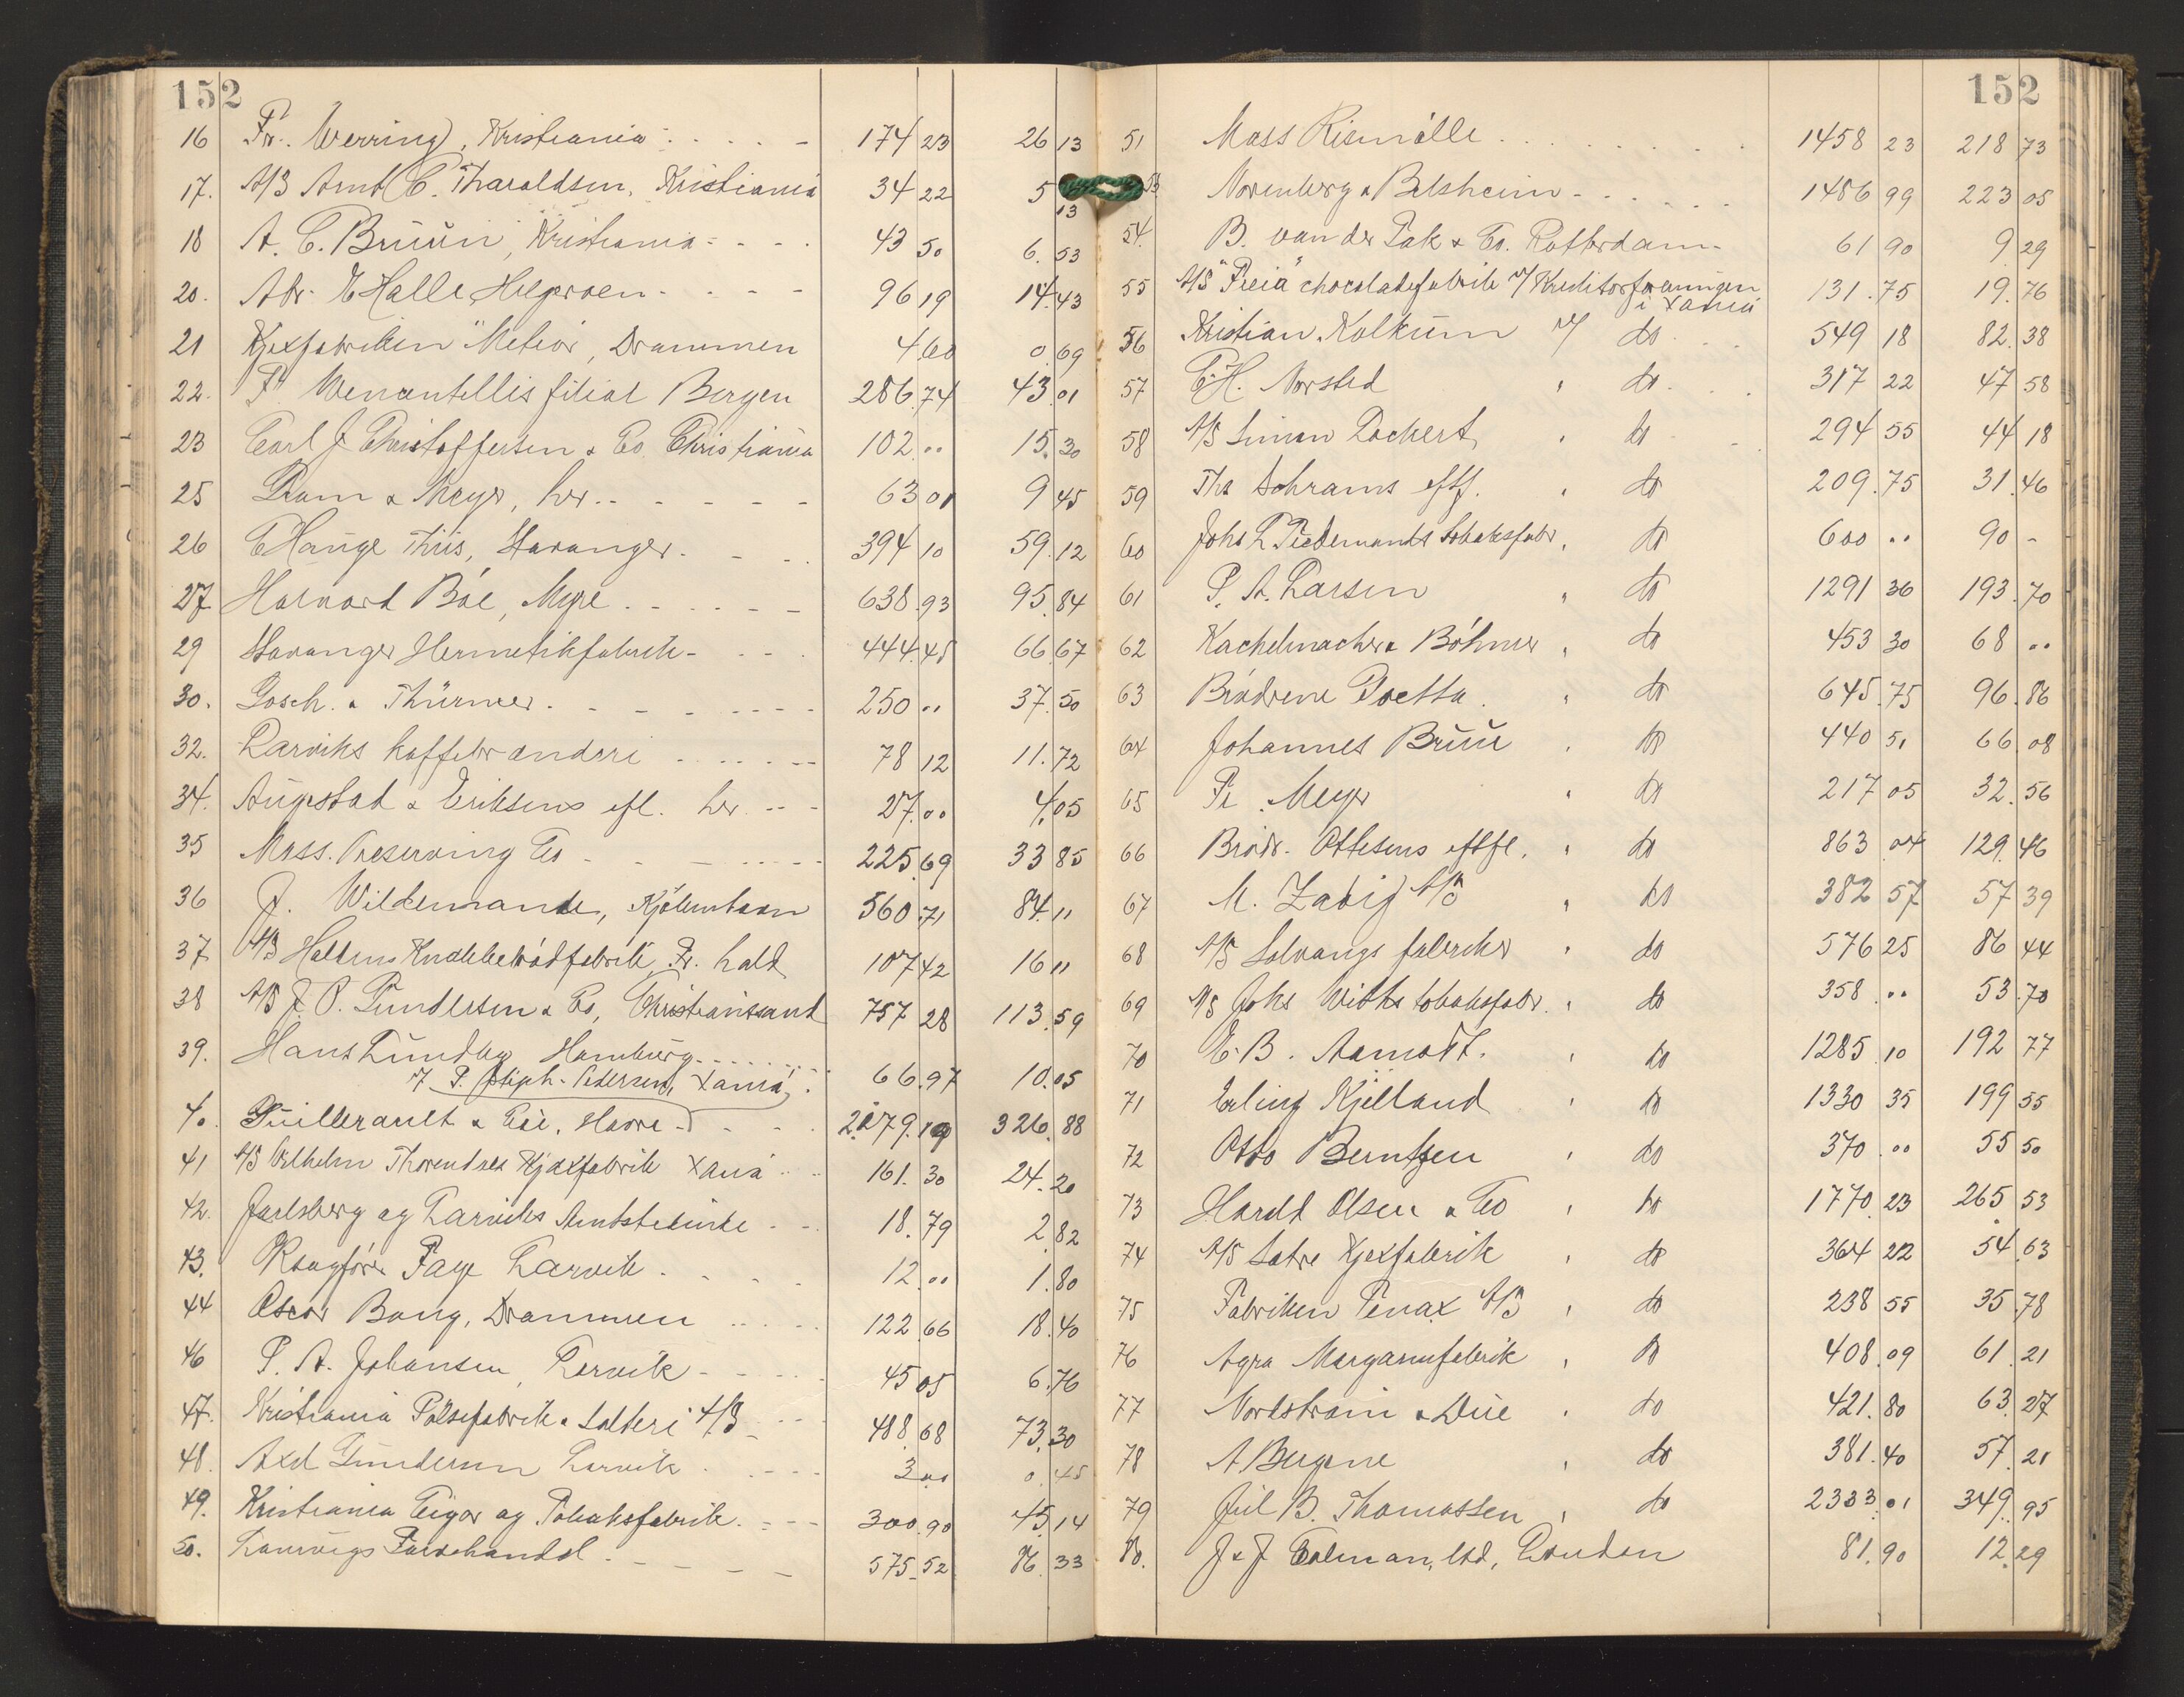 152
16 Fr. Werring, Kristiania 174 23 26 13
17. A/S Arnt C. Tharaldsen, Kristiania 34 22 5 13
18 A. C. Bruun, Kristiania 43 50 6. 53
20. Abr. Halle 96 19 14. 43
21 Kjæxfabriken "Meteor, Drammen 4 60 0. 69
22. filial Bergen 286. 74 43. 01
23 Carl J Christoffersen & Co. Christiania 102 .. 15. 30
25 Dam & Meyer, her 63 01 9 45
26 C Hauge Thiis, Stavanger 394 10 59. 12
27 Halvard Bøe, 638. 93 95. 84
29 Stavanger Hermetikfabrik 444. 45 66 67
30. Gosch & Thürmer 250 .. 37. 50
32. Larviks kaffebrænderi 78 12 11. 72
34. Augestad & Eriksens efl. her 27. 00 4. 05
35 Moss. Preserving Co 225. 69 33 85
36 J. Wildenrande, Kjøbenhavn 560. 71 84. 11
37 A/S Haldens Knækkebrødfabrik, Fr. hald 107 42 16 11
38 A/S J. P. Gundersen & Co, Christianssand 757 28 113. 59
39. Hans Lundby Hamburg
v/ P. Steph. Pedersen, Xania 66. 97 10. 05
40. Guillerault & Cie, Havre 2.179. 19 326. 88
41 A/S Vilhelm Thorendses Kjæxfabrik Xania 161. 30 24. 20
42. Jarlsberg og Larviks Amtstidende 18. 79 2 82
43. Rsagfører Faye Larvik 12 .. 1. 80
44 Oscar Bang, Drammen 122. 66 18. 40
46 P. A. Johansen, Larvik 45 05 6. 76
47. Kristiania Pølsefabrik & Salteri A/S 488. 68 73. 30
48. Axel Gundersen Larvik 3 00 0. 45
49. Kristiania Cigar og Tobaksfabrik 300. 90 45. 14
50. Laurvigs Farvehandel 575. 52 86. 33
152
51 Moss Rismølle 1458 23 218 73
53. Norenberg & Belsheim 1486 99 223 05
54. B. van der Tak & Co. Rotterdam 61 90 9 29
55 A/S "Freia" chocoladefabrik v/ Kreditorforeningen
i Xania 131. 75 19. 76
56 Kristian Kolkum v/ do 549 18 82. 38
57 C. H. Norsted " do 317 22 47 58
58 A/S Simon Dochert " do 294 55 44 18
59 Ths Schrams eftf. " do 209. 75 31. 46
60 Johs L. Tiedemands tobaksfabr. " do 600 .. 90 -
61 P. A. Larsen " do 1291 36 193. 70
62 Kachelmacher & Böhmer " do 453 30 68 ..
63 Brødrene Doetta " do 645. 75 96. 86
64 Johannes Bruu " do 440 51 66 08
65 Fr. Meyer " do 217 05 32. 56
66 Brødr. Ottesens eftfl. " do 863 04 129. 46
67 M. Zabig A/S " do 382 57 57 39
68 A/S Solvangs fabriker " do 576 25 86 44
69 A/S Johs Withs tobaksfabr. " do 358 .. 53. 70
70 E. B. Aamodt. " do 1285. 10 192 77
71 Erling Kjelland " do 1330 35 199 55
72 Otto Berntzen " do 370 .. 55 50
73 Harald Olsen & Co " do 1770. 23 265 53
74 A/S Sætre Kjæxfabrik " do 364 22 54. 63
75 Fabriken Penax A/S " do 238 55 35. 78
76 Agra Margarinfabrik " do 408. 09 61. 21
77 Nordstrøm & Due " do 421. 80 63. 27
78 A Bergene " do 381. 40 57. 21
79 Jul B. Thomassen " do 2333. 01 349. 95
80. J & J Colman, ltd, London 81. 90 12. 29